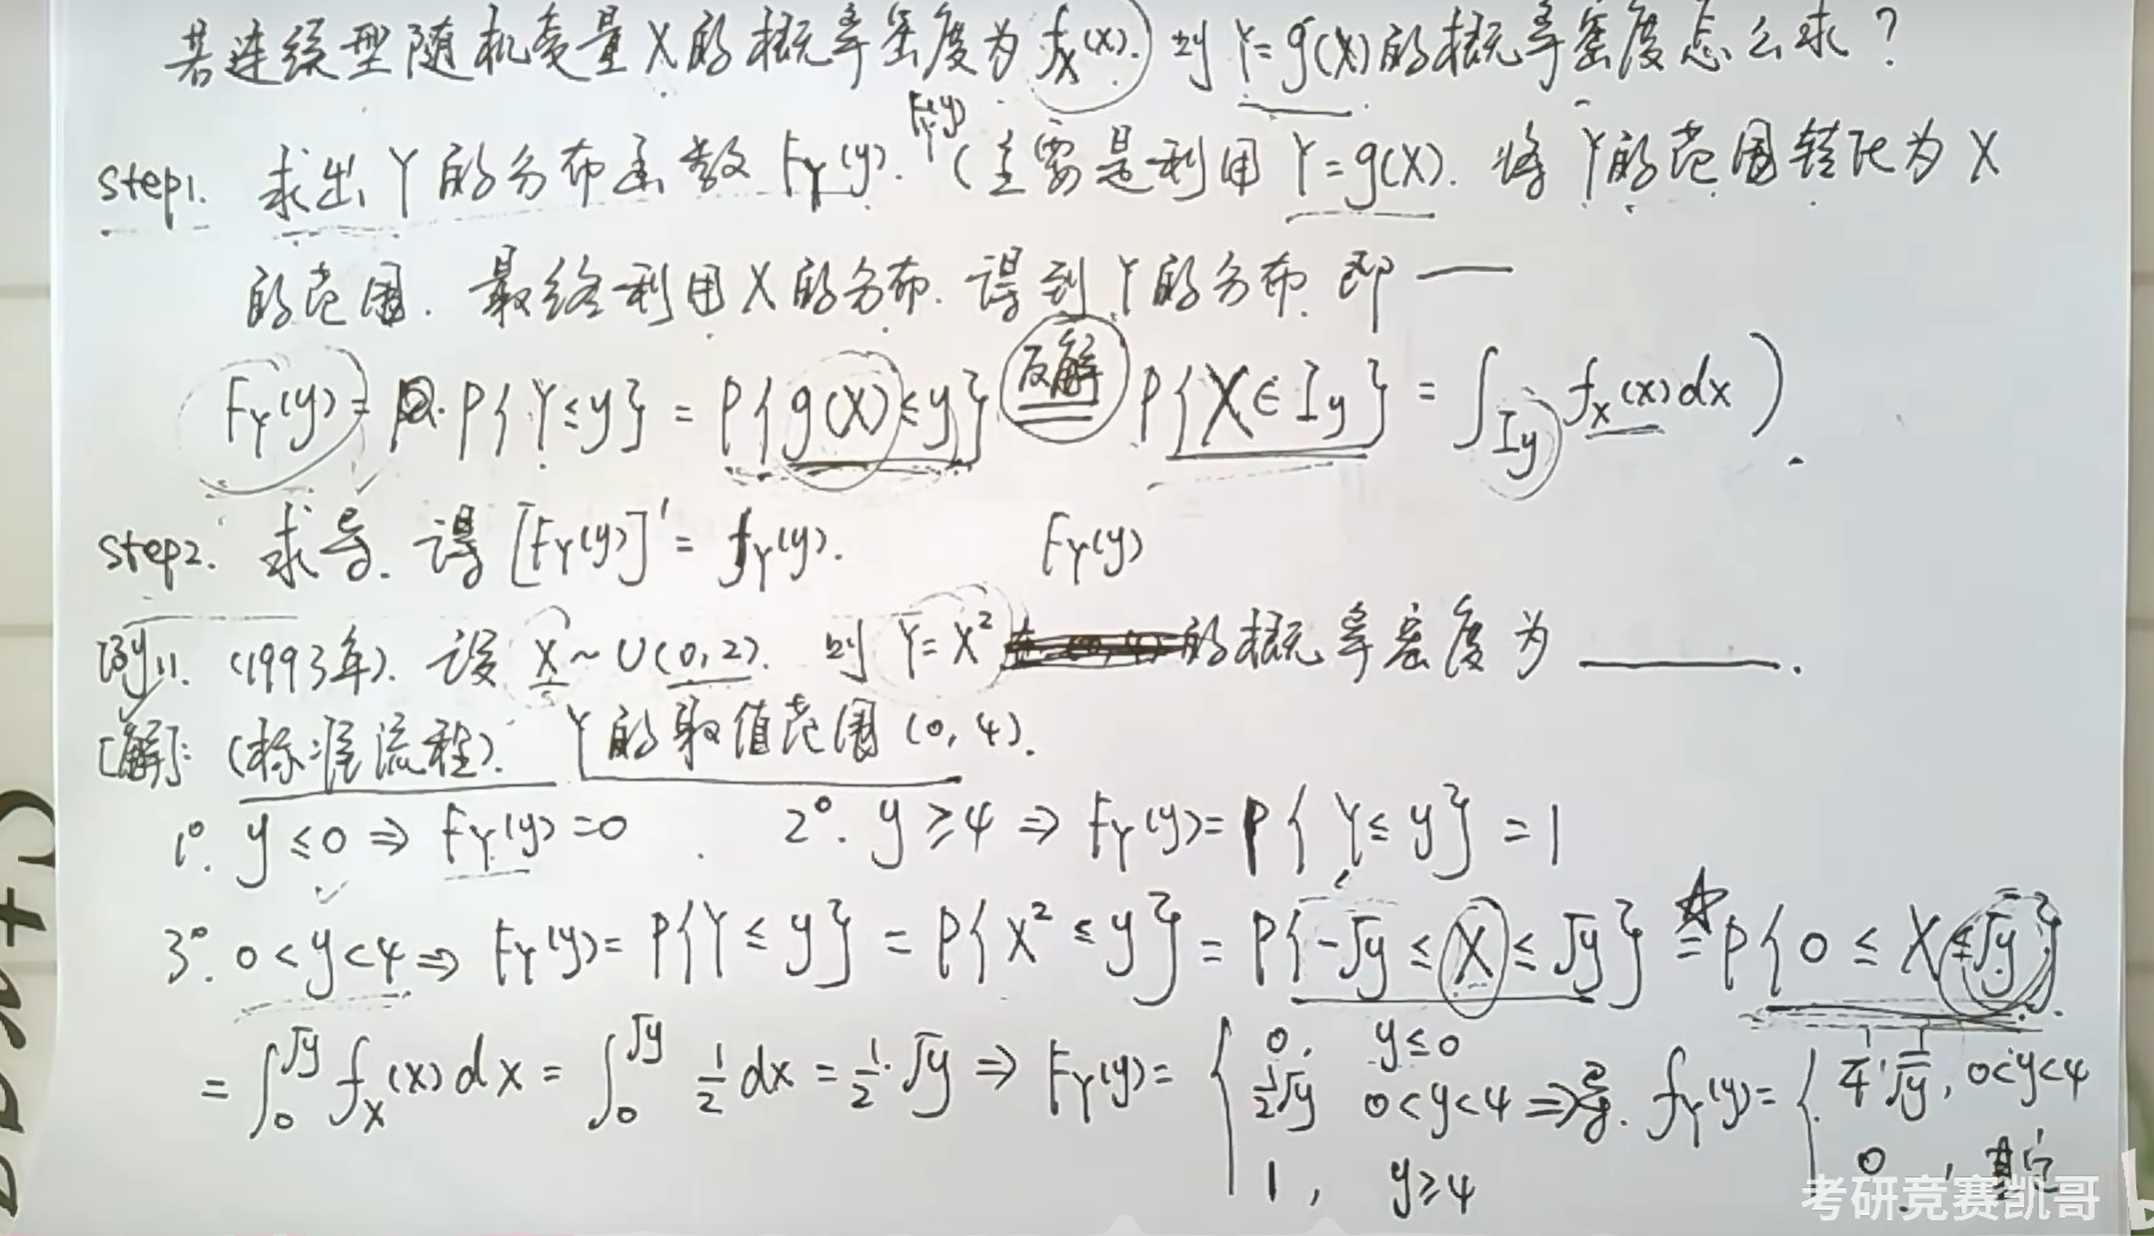 若连续型随机变量X的概率密度为fX(x). 则Y=g(X)的概率密度怎么求?
step1. 求出Y的分布函数FY(y). (主要是利用Y=g(X). 将Y的范围转化为X
的范围. 最终利用X的分布. 得到Y的分布. 即——
FY(y)= P{Y≤y} = P{g(X)≤y} 反解 P{X∈Iy} = ∫Iy fX(x)dx).
step2. 求导. 得[FY(y)]'= fY(y). FY(y)
例1. (1993年). 设X~U(0,2). 则Y=X²的概率密度为______.
[解]: (标准流程). Y的取值范围(0,4).
1°. y≤0⇒FY(y)=0 2°. y≥4⇒FY(y)=P{Y≤y}=1
3°. 0<y<4⇒FY(y)=P{Y≤y}=P{X²≤y}=P{-√y≤X≤√y}☆=P{0≤X≤√y}
=∫0^√y fX(x)dx=∫0^√y 1/2 dx=1/2·√y⇒FY(y)={0, y≤0 1/2√y 0<y<4 1, y≥4 ⇒导. fY(y)={1/4·1/√y, 0<y<4 0, 其它
考研竞赛凯哥